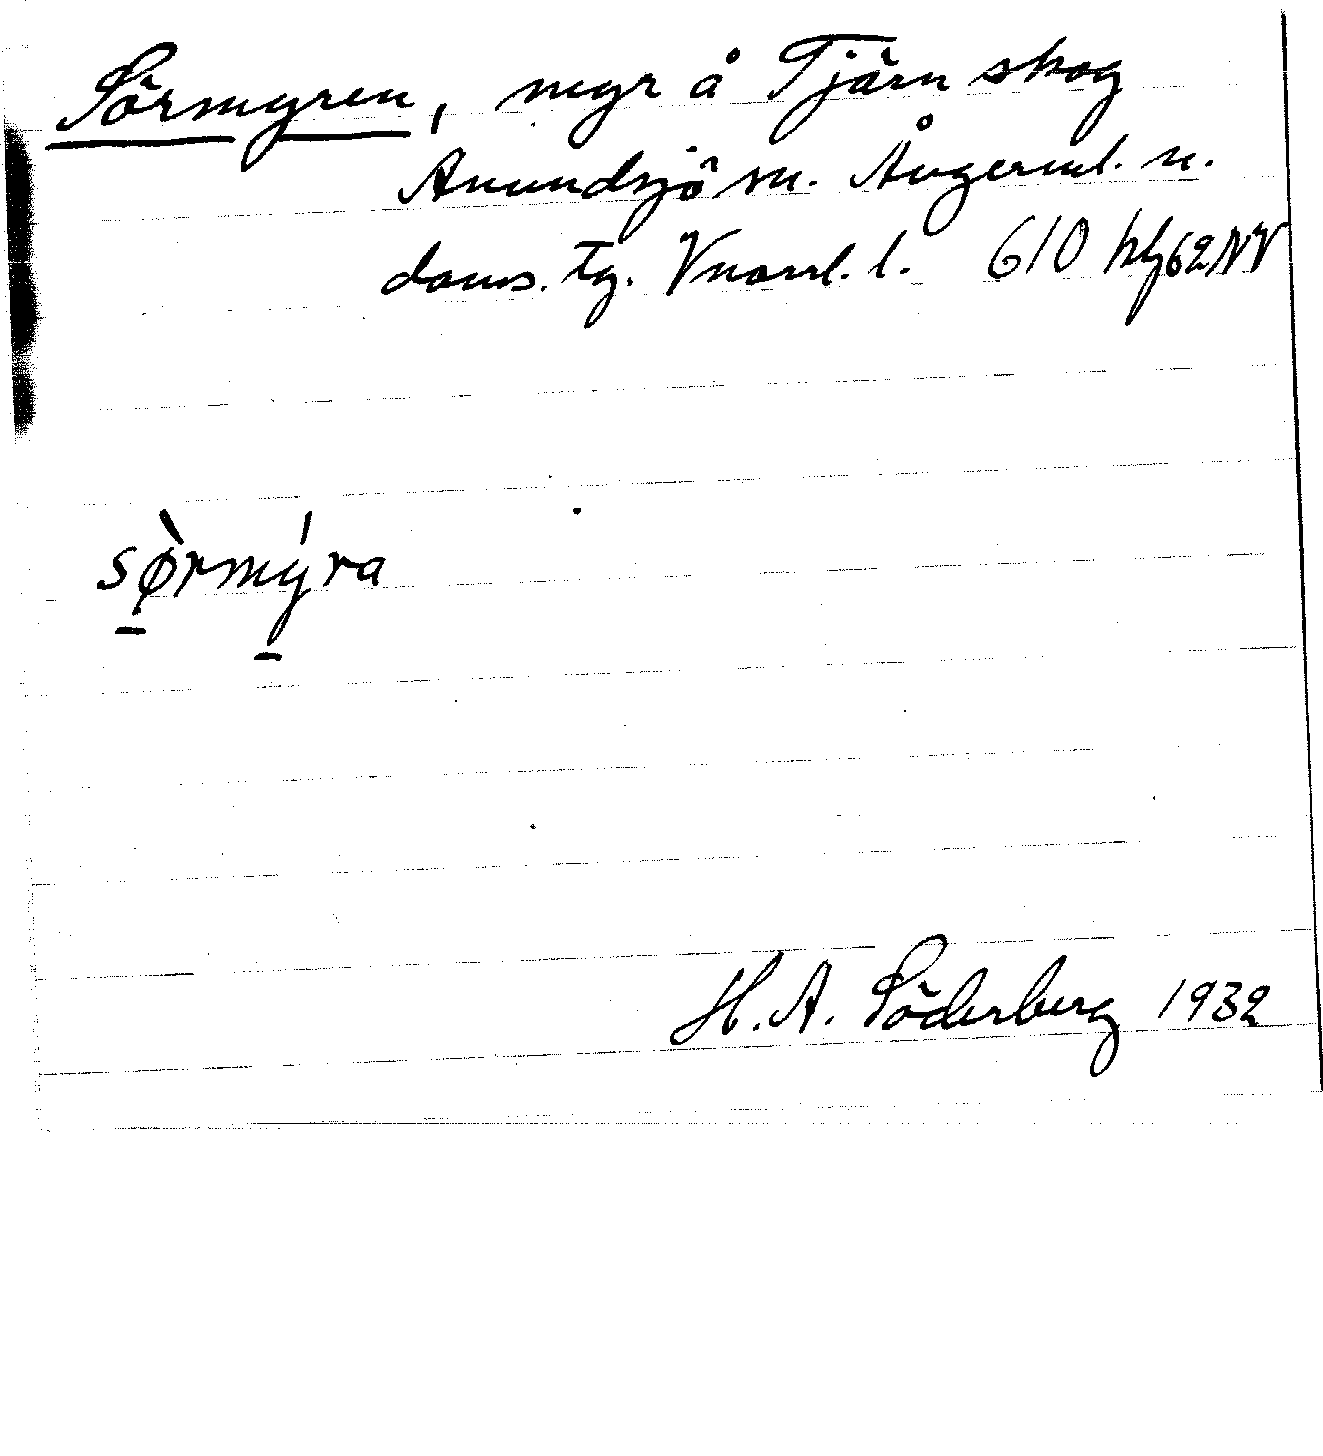 Sörmyren, myr å Tjärn skog
Anundsjö sn. Ångerml. n.
doms. tg. Vnorrl. l. 610 kbl 62NV
sø̀rmýra
H. A. Söderberg 1932